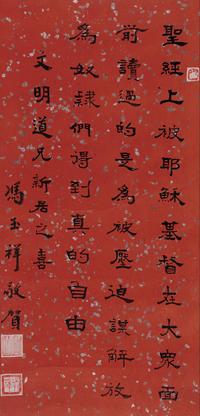 聖經上被耶穌基督在大衆面
前讀過的是為被壓迫謀解放
為奴隸們得到真的自由
文明道兄新居之喜
馮玉祥敬賀